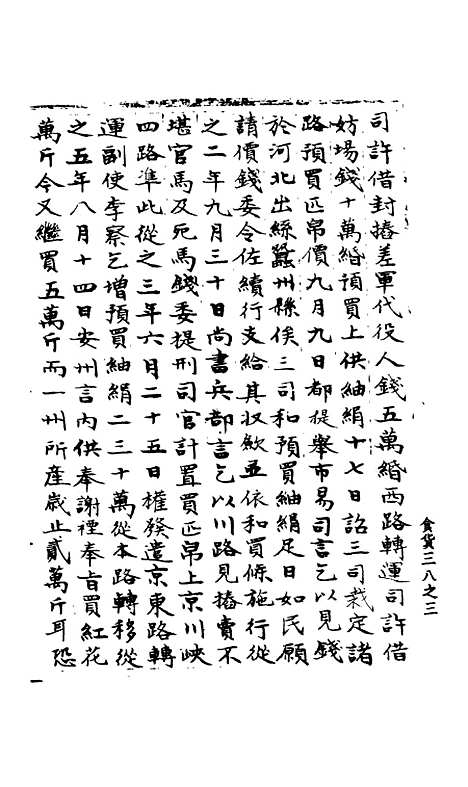 司許借封樁差軍代役人錢五萬緡西路轉運司許借
妨場錢十萬緡預買上供紬絹十七日詔三司裁定諸
路預買匹帛價九月九日都提舉市易司言乞以見錢
於河北出絲蠶州縣俟三司和預買紬絹足日如民願
請價錢委令佐續行支給其收斂並依和買條施行從
之二年九月三十日尚書兵部言乞以川路見樁賣不
堪官馬及死馬錢委提刑司官計置買匹帛上京川峽
四路準此從之三年六月二十五日權發遣京東路轉
運副使李察乞增預買紬絹二三十萬從本路轉移從
之五年八月十四日安州言內供奉謝禋奉旨買紅花
萬斤今又繼買五萬斤而一州所產歲止貳萬斤耳恐
食貨三八之三
一